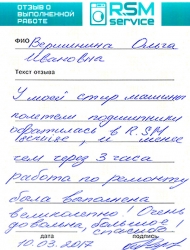 ОТЗЫВ О
ВЫПОЛНЕННОЙ
РАБОТЕ
RSM
service
ФИО Вершинина Ольга
Ивановна
Текст отзыва
У моей стир машины
полетели подшипники
обратилась в R.SM
и менее
чем через 3 часа
работа по ремонту
была выполнена
великолепно! Очень
довольна, большое
спасибо
10.03.2017
дата
подпись